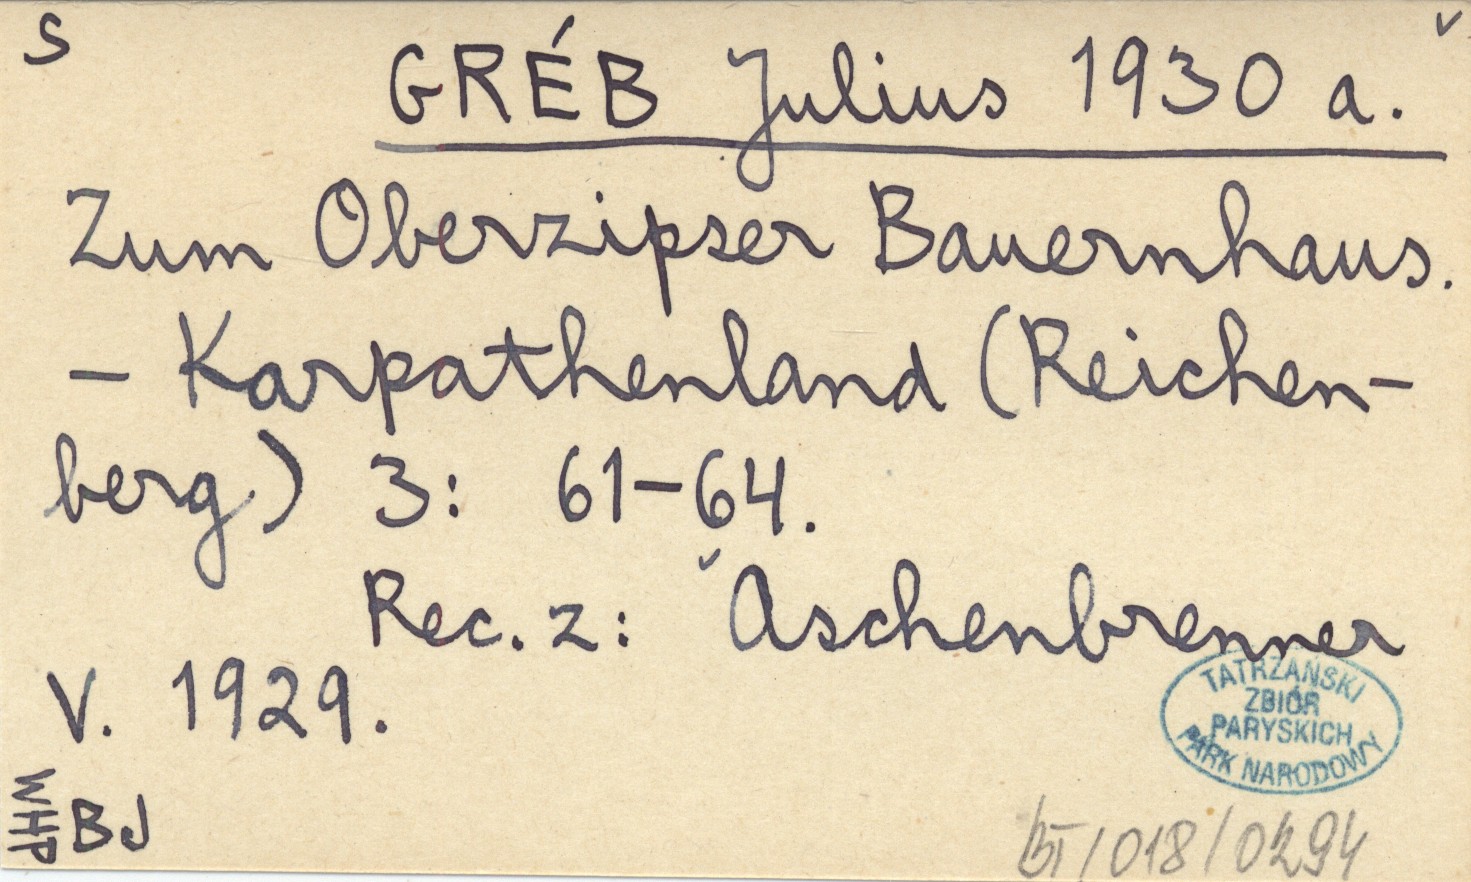 S
GRÉB Julius 1930 a.
Zum Oberzipser Bauernhaus.
– Karpathenland (Reichen-
berg) 3: 61–64.
Rec. z: Aschenbrenner
V. 1929.
TATRZAŃSKI
ZBIÓR
PARYSKICH
PARK NARODOWY
WHP
BJ
BT/018/0294